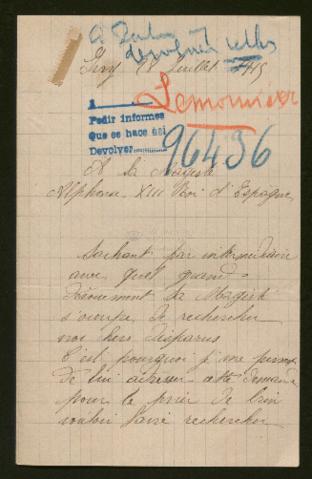 devolver
Ivry 18 Juillet 1915
Lemonnier
1
Pedir informes
Que se hace así
Devolver
96436
A Sa Majesté
Alphonse XIII Roi d'Espagne
Sachant par intermédiaire
avec quel grand
dévouement Sa Majesté
s'occupe de rechercher
nos chers disparus
C'est pourquoi j'ose
de lui adresser cette demande
pour le prier de bien
vouloir faire rechercher